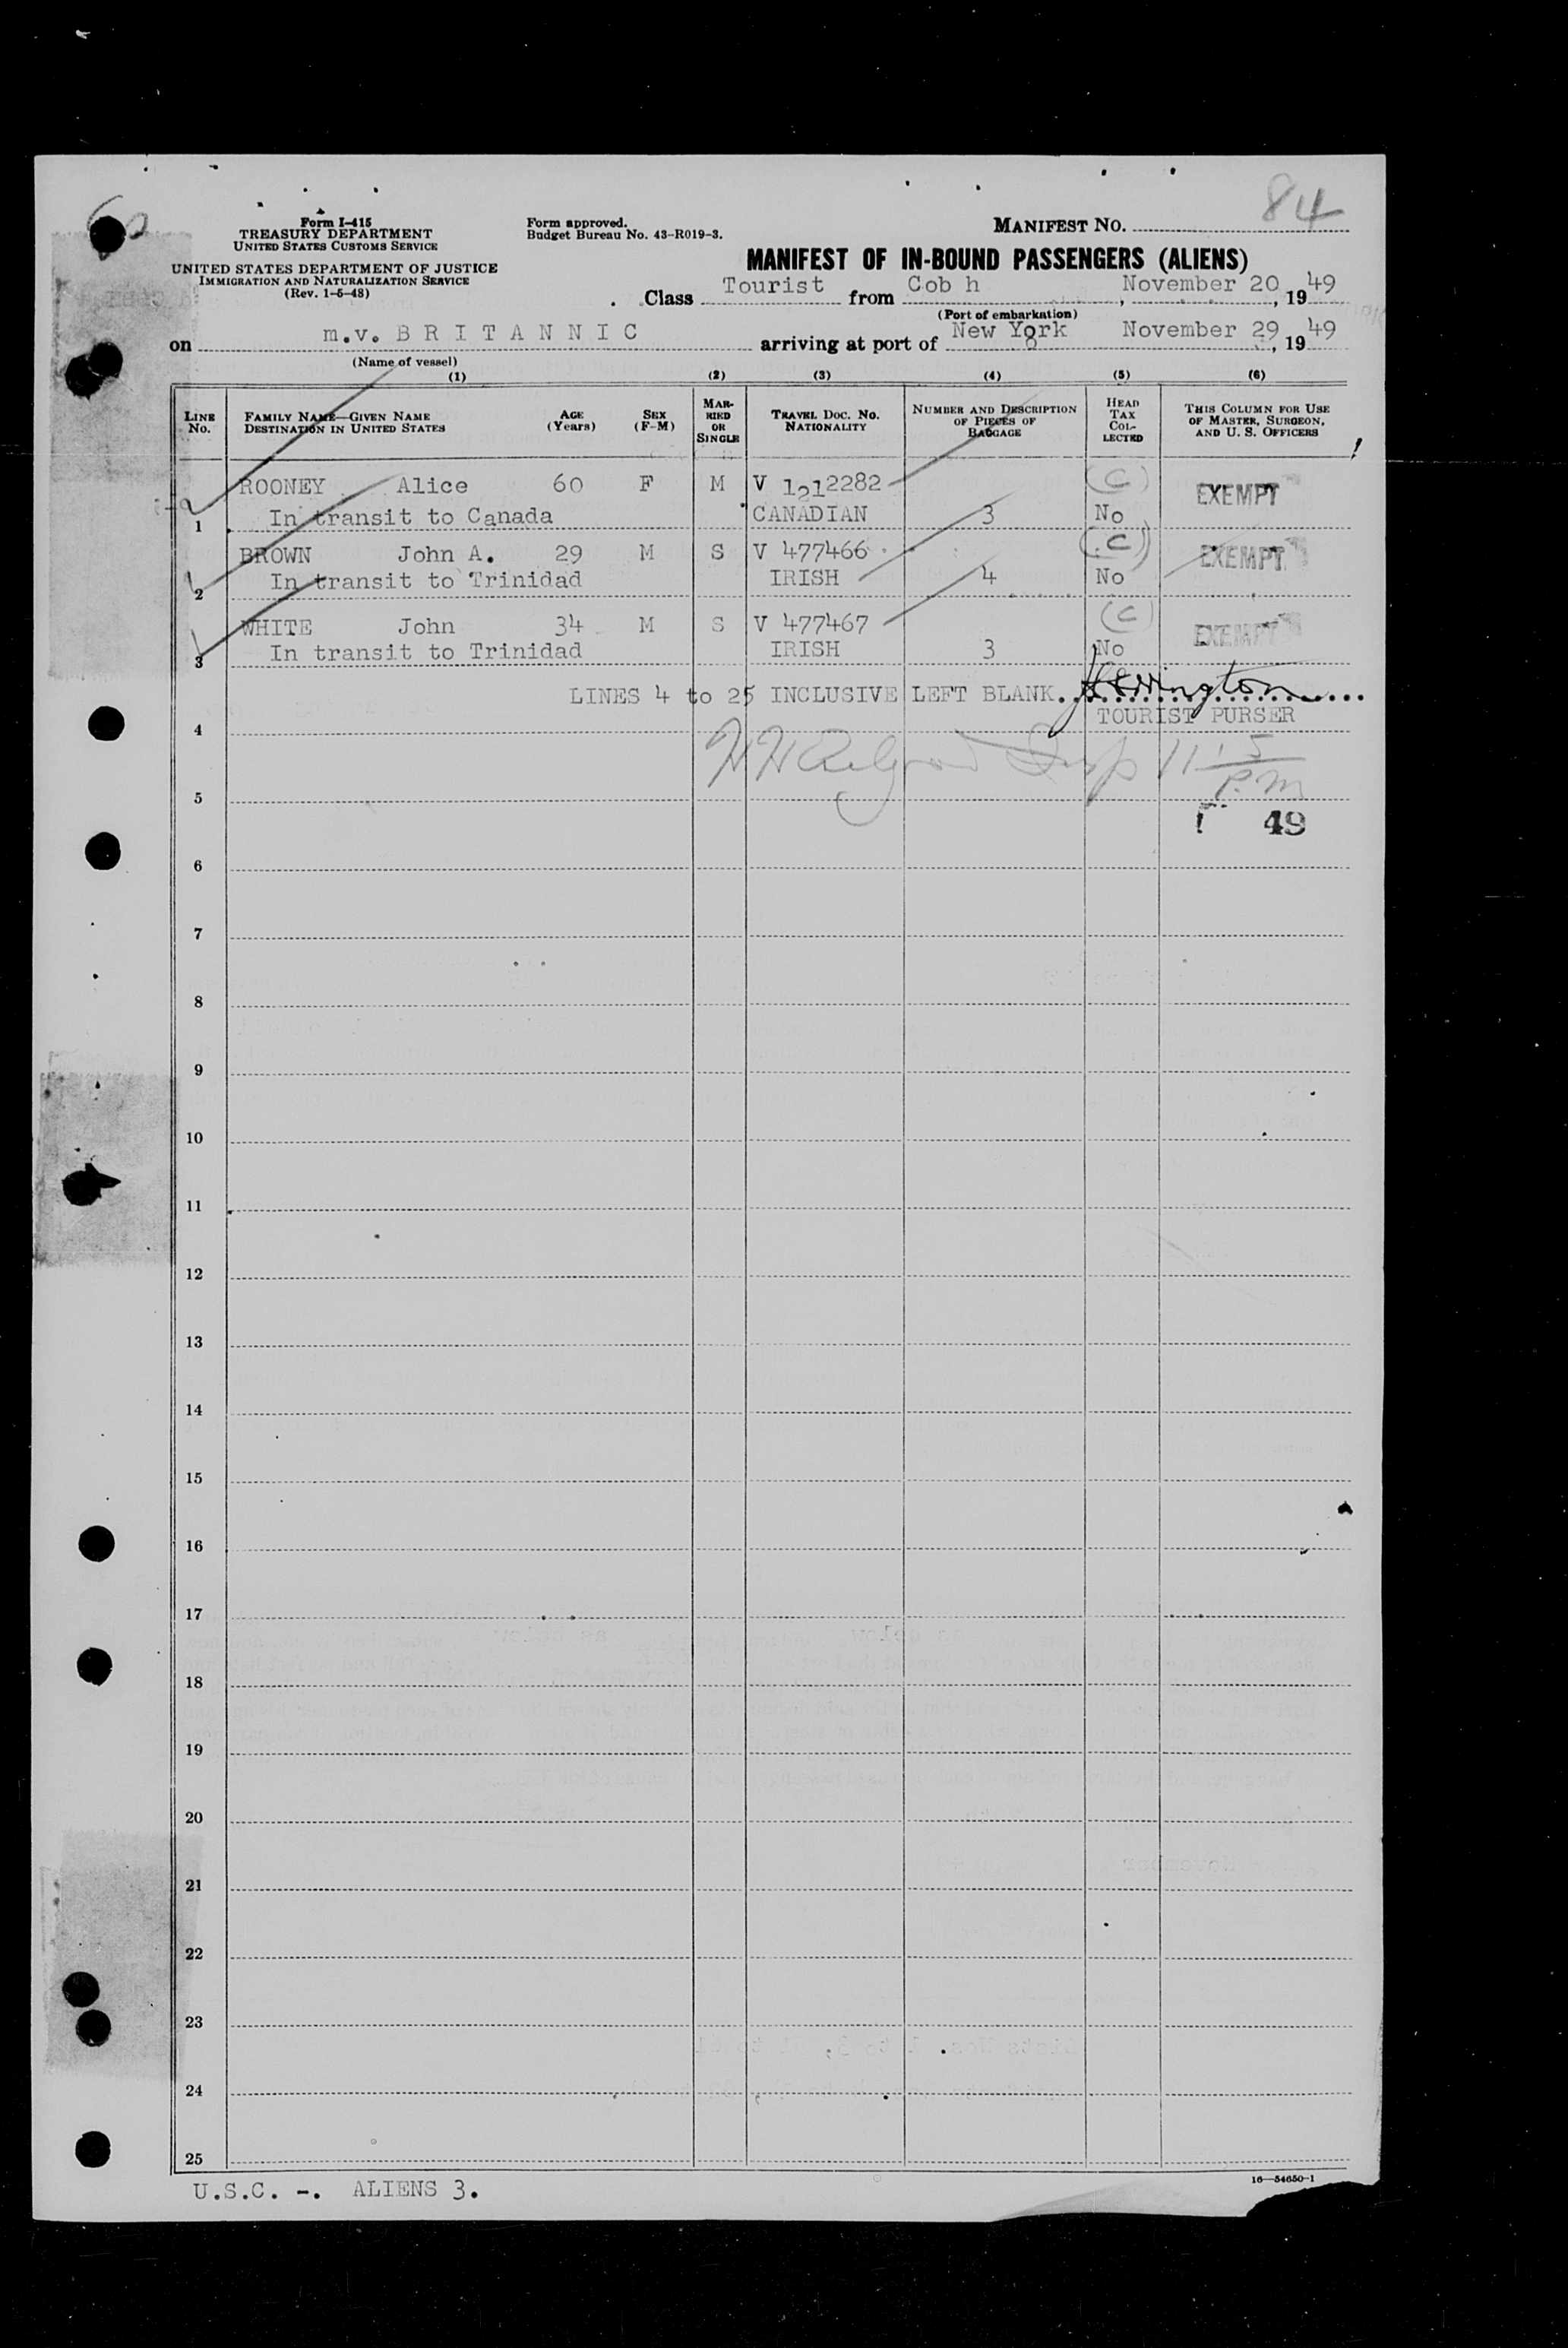 60
84
Form I-415
TREASURY DEPARTMENT
UNITED STATES CUSTOMS SERVICE
UNITED STATES DEPARTMENT OF JUSTICE
IMMIGRATION AND NATURALIZATION SERVICE
(Rev. 1-5-48)
Form approved.
Budget Bureau No. 43-R019-3.
MANIFEST No.
MANIFEST OF IN-BOUND PASSENGERS (ALIENS)
Class Tourist from Cob h, November 20, 1949
(Port of embarkation)
on m.v. B R I T A N N I C arriving at port of New York November 29, 1949
(Name of vessel)
(1) (2) (3) (4) (5) (6)
LINE No. FAMILY NAME—GIVEN NAME DESTINATION IN UNITED STATES AGE (Years) SEX (F-M) MARRIED OR SINGLE TRAVEL DOC. NO. NATIONALITY NUMBER AND DESCRIPTION OF PIECES OF BAGGAGE HEAD TAX COLLECTED THIS COLUMN FOR USE OF MASTER, SURGEON, AND U. S. OFFICERS
ROONEY Alice 60 F M V 1212282 (C) EXEMPT
1 In transit to Canada CANADIAN 3 No
BROWN John A. 29 M S V 477466 (C) EXEMPT
2 In transit to Trinidad IRISH 4 No
WHITE John 34 M S V 477467 (C) EXEMPT
3 In transit to Trinidad IRISH 3 No
LINES 4 to 25 INCLUSIVE LEFT BLANK.
TOURIST PURSER
4
Insp 11 15 P.M
5
49
6
7
8
9
10
11
12
13
14
15
16
17
18
19
20
21
22
23
24
25
U.S.C. -. ALIENS 3.
16—54650-1